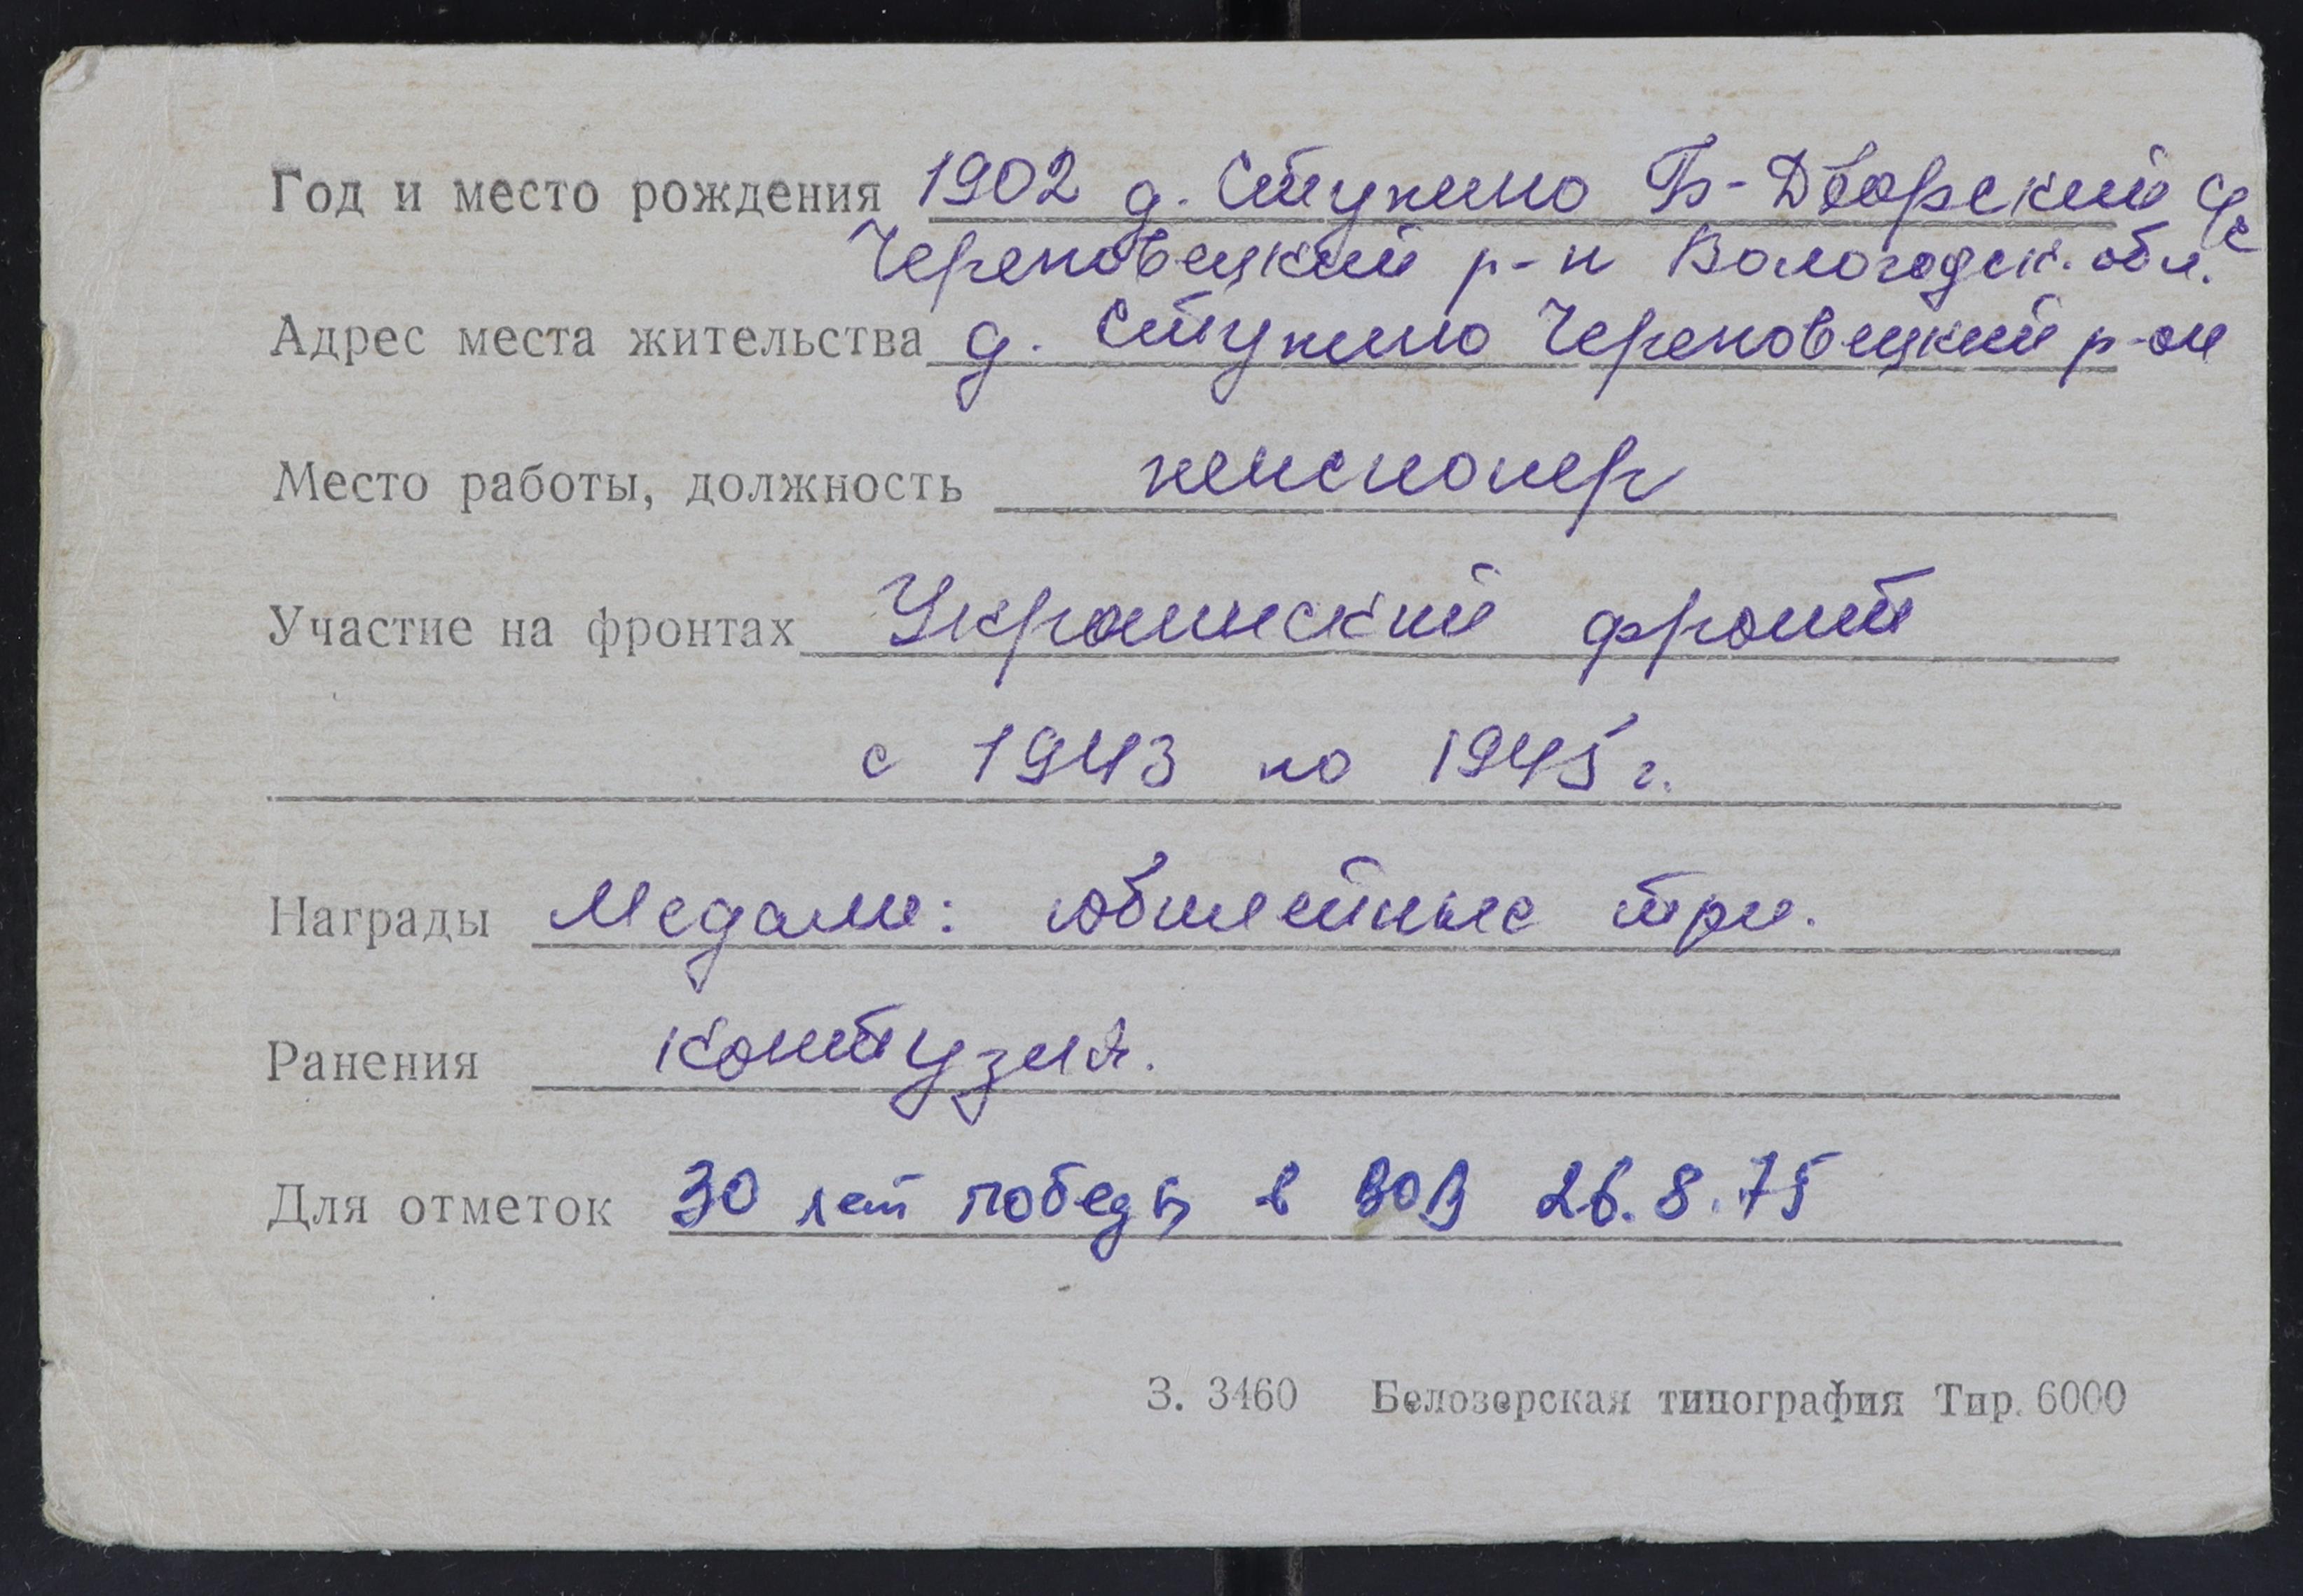 Год и место рождения 1902 д. Ступино Б-Дворский с/с
Череповецкий р-н Вологодск. обл.
Адрес места жительства д. Ступино Череповецкий р-он
Место работы, должность пенсионер
Участие на фронтах Украинский фронт
с 1943 по 1945 г.
Награды Медали: юбилейные три.
Ранения контузия.
Для отметок 30 лет победы в ВОВ 26.8.75
З. 3460 Белозерская типография Тир. 6000